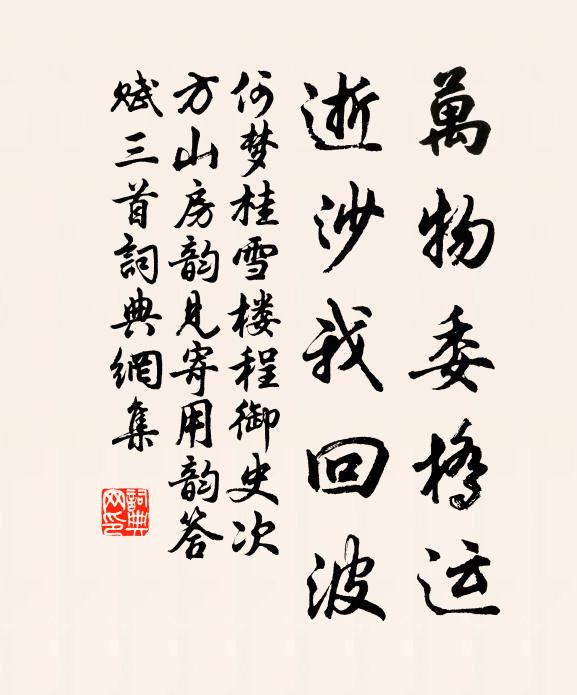 萬物委橋运
逝沙我回波
何梦桂雪楼程御史次
方山房韵见寄用韵答
赋三首詞典網集
詞典网印